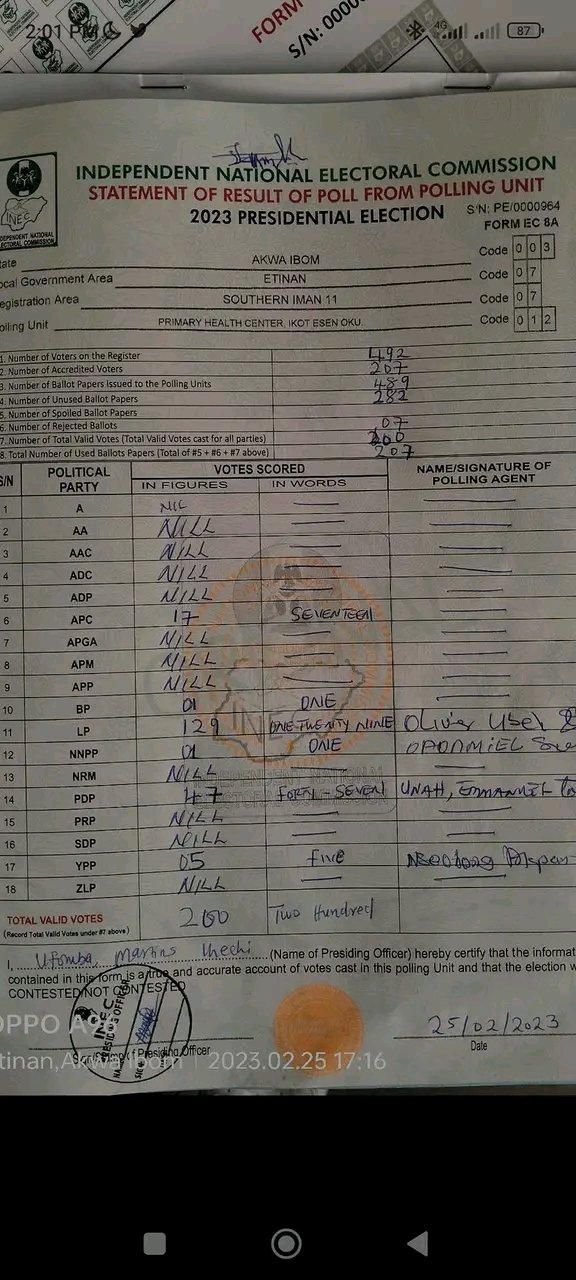 2:01 PM 4G 87
FORM
S/N: 0000
INDEPENDENT NATIONAL ELECTORAL COMMISSION
STATEMENT OF RESULT OF POLL FROM POLLING UNIT
2023 PRESIDENTIAL ELECTION S/N: PE/0000964
FORM EC 8A
INEC
INDEPENDENT NATIONAL
ELECTORAL COMMISSION
tate AKWA IBOM Code 0 0 3
ocal Government Area ETINAN Code 0 7
egistration Area SOUTHERN IMAN 11 Code 0 7
olling Unit PRIMARY HEALTH CENTER, IKOT ESEN OKU. Code 0 1 2
1. Number of Voters on the Register 492
2. Number of Accredited Voters 207
3. Number of Ballot Papers Issued to the Polling Units 489
4. Number of Unused Ballot Papers 282
5. Number of Spoiled Ballot Papers
6. Number of Rejected Ballots 07
7. Number of Total Valid Votes (Total Valid Votes cast for all parties) 200
8. Total Number of Used Ballots Papers (Total of #5 + #6 + #7 above) 207
S/N POLITICAL PARTY VOTES SCORED NAME/SIGNATURE OF POLLING AGENT
IN FIGURES IN WORDS
1 A NIL
2 AA NILL
3 AAC NILL
4 ADC NILL
5 ADP NILL
6 APC 17 SEVENTEEN
7 APGA NILL
8 APM NILL
9 APP NILL
10 BP 01 ONE
11 LP 129 ONE TWENTY NINE
12 NNPP 01 ONE
13 NRM NILL
14 PDP 47 FORTY-SEVEN UNAH, EMMANUEL
15 PRP NILL
16 SDP NILL
17 YPP 05 FIVE
18 ZLP NILL
TOTAL VALID VOTES 200 Two Hundred
(Record Total Valid Votes under #7 above)
I, Martins (Name of Presiding Officer) hereby certify that the informat
contained in this form is a true and accurate account of votes cast in this polling Unit and that the election w
CONTESTED/NOT CONTESTED
INEC
PRESIDING OFFICER
25/02/2023
of Presiding Officer Date
OPPO A9
tinan, Akwa Ibom | 2023.02.25 17:16